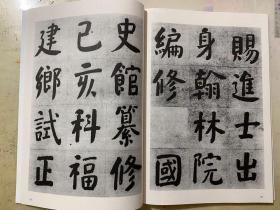 賜進士出
身翰林院
編修 國
史館纂修
己亥科福
建鄉試正